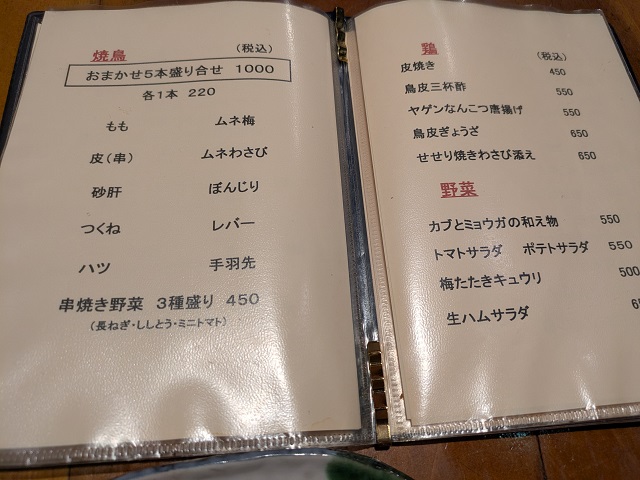 焼鳥 (税込)
おまかせ5本盛り合せ 1000
各1本 220
もも ムネ梅
皮(串) ムネわさび
砂肝 ぼんじり
つくね レバー
ハツ 手羽先
串焼き野菜 3種盛り 450
(長ねぎ・ししとう・ミニトマト)
鶏 (税込)
皮焼き 450
鳥皮三杯酢 550
ヤゲンなんこつ唐揚げ 550
鳥皮ぎょうざ 650
せせり焼きわさび添え 650
野菜
カブとミョウガの和え物 550
トマトサラダ ポテトサラダ 550
梅たたきキュウリ 500
生ハムサラダ